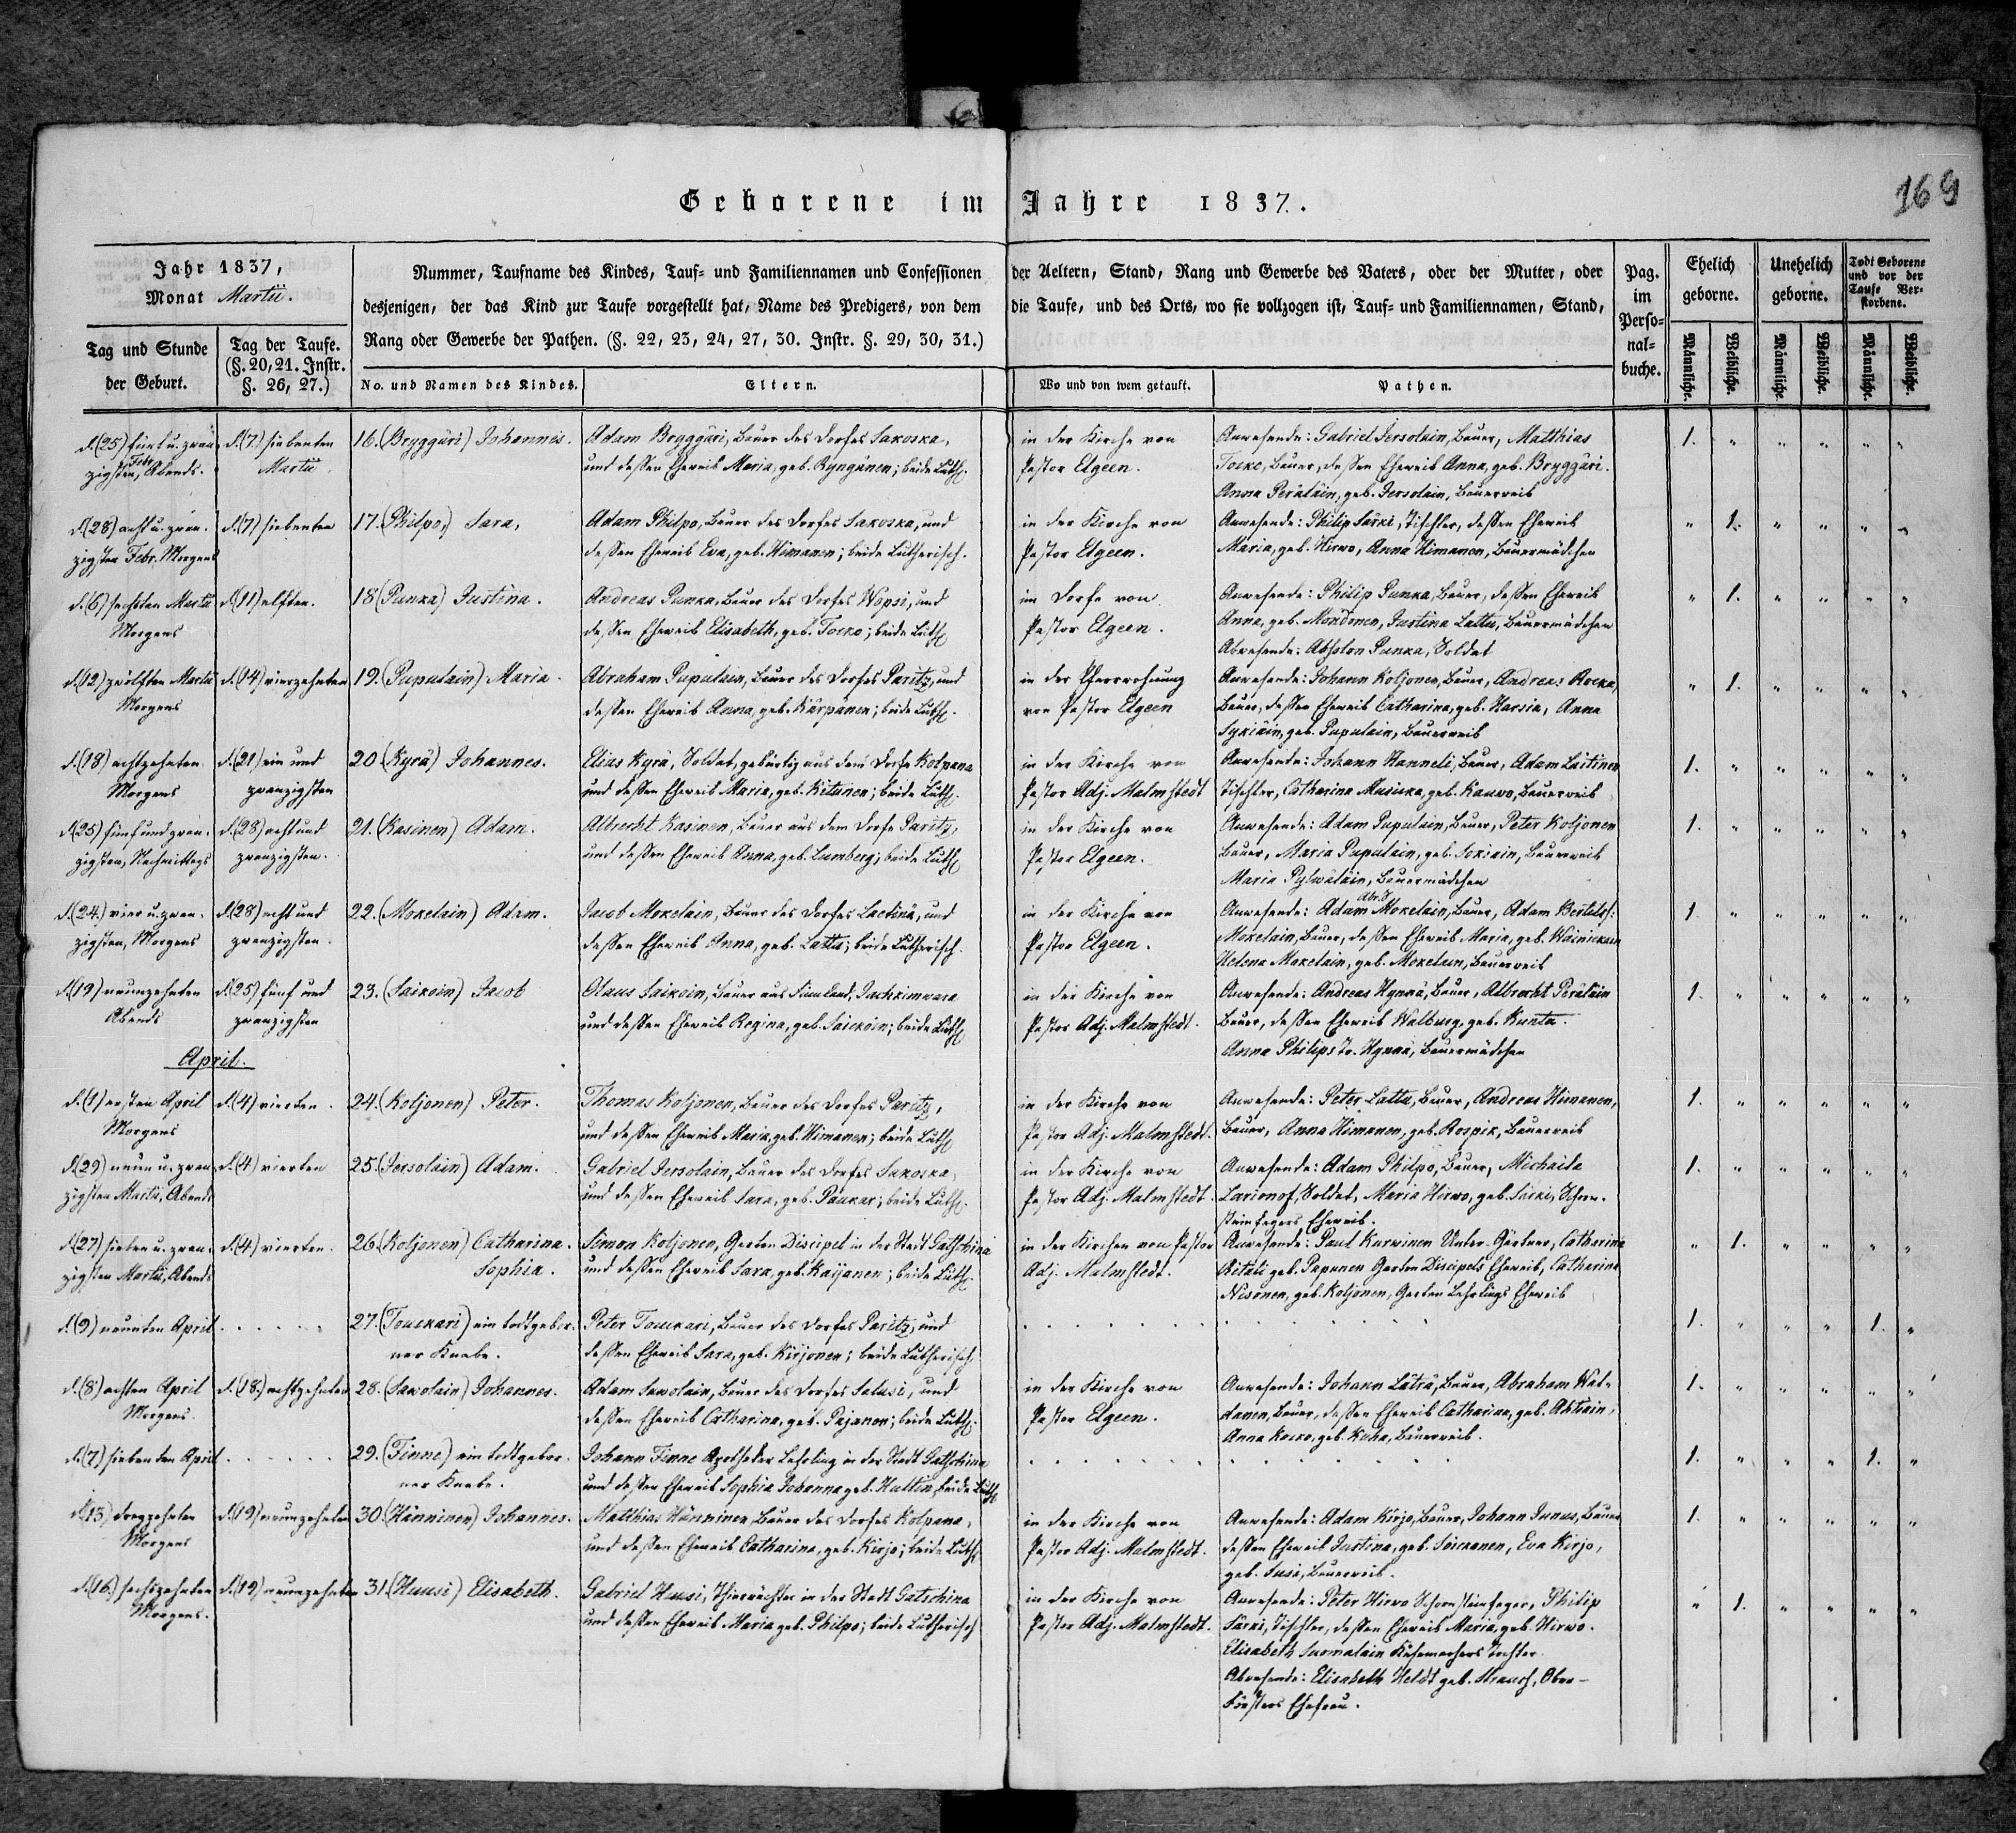 169
Geborene im Jahre 1837.
Jahr 1837,
Monat Martii.
Tag und Stunde
der Geburt.
Tag der Taufe.
(§. 20, 21. Instr.
§. 26, 27.)
Nummer, Taufname des Kindes, Tauf- und Familiennamen und Confessionen der Aeltern, Stand, Rang und Gewerbe des Vaters, oder der Mutter, oder
desjenigen, der das Kind zur Taufe vorgestellt hat, Name des Predigers, von dem die Taufe, und des Orts, wo sie vollzogen ist, Tauf- und Familiennamen, Stand,
Rang oder Gewerbe der Pathen. (§. 22, 23, 24, 27, 30. Instr. §. 29, 30, 31.)
No. und Namen des Kindes.
Eltern.
Wo und von wem getauft.
Pathen.
Pag.
im
Perso-
nal-
buche.
Ehelich
geborne.
Unehelich
geborne.
Todt Geborene
und vor der
Taufe Ver-
storbene.
Männliche.
Weibliche.
Männliche.
Weibliche.
Männliche.
Weibliche.
d. (25) fünf u. zwan-
zigsten Febr. Abends.
d. (7) siebenten
Martii
16. (Bryggäri) Johannes.
Adam Bryggäri, Bauer des Dorfes Sakoska,
und dessen Eheweib Maria, geb. Ryngänen; beide Luth.
in der Kirche von
Pastor Elgeen.
Anwesende: Gabriel Jersolain, Bauer, Matthias
Tocko, Bauer, dessen Eheweib Anna, geb. Bryggäri.
Anna Perälain, geb. Jersolain, Bauerweib
1. " " " " "
d. (28) acht u. zwan-
zigsten Febr. Morgens
d. (7) siebenten
17. (Philpo,) Sara,
Adam Philpo, Bauer des Dorfes Sakoska, und
dessen Eheweib Eva, geb. Himanen; beide Lutherisch.
in der Kirche von
Pastor Elgeen.
Anwesende: Philip Särki, Tischler, dessen Eheweib
Maria, geb. Hirwo, Anna Himanen, Bauermädchen
" 1. " " " "
d. (6) sechsten Martii
Morgens
d. (11) elften.
18 (Punka) Justina.
Andreas Punka, Bauer des Dorfes Wopsi, und
dessen Eheweib Elisabeth, geb. Tocko; beide Luth.
im Dorfe von
Pastor Elgeen.
Anwesende: Philip Punka, Bauer, dessen Eheweib
Anna, geb. Mondonen, Justina Lattu, Bauermädchen
Abwesende: Absolon Punka, Soldat
" 1. " " " "
d. (12) zwölften Martii
Morgens
d. (14) vierzehnten
19. (Puputain) Maria.
Abraham Puputain, Bauer des Dorfes Paritz, und
dessen Eheweib Anna, geb. Kärpanen; beide Luth.
in der Pfarrwohnung
von Pastor Elgeen
Anwesende: Johann Koljonen, Bauer, Andreas Rocka,
Bauer, dessen Eheweib Catharina, geb. Harsia, Anna
geb. Puputain, Bauerweib
" 1. " " " "
d. (18) achtzehnten
Morgens
d. (21) ein und
zwanzigsten
20 (Kyrä) Johannes.
Elias Kyrä, Soldat, gebürtig aus dem Dorfe Kolpana
und dessen Eheweib Maria, geb. Kitunen; beide Luth.
in der Kirche von
Pastor Adj. Malmstedt
Anwesende: Johann Hanneli, Bauer, Adam Laitinen
Tischler, Catharina geb. Kauwo, Bauerweib
1. " " " " "
d. (25) fünf und zwan-
zigsten, Nachmittags
d. (28) acht und
zwanzigsten.
21. (Kasinen) Adam.
Albrecht Kasinen, Bauer aus dem Dorfe Paritz,
und dessen Eheweib Anna, geb. Lumberg; beide Luth.
in der Kirche von
Pastor Elgeen.
Anwesende: Adam Puputain, Bauer, Peter Koljonen
Bauer, Maria Puputain, geb. Sokiain, Bauerweib
Maria Pylwäläin, Bauermädchen
1. " " " " "
d. (24.) vier u. zwan-
zigsten, Morgens
d. (28) acht und
zwanzigsten.
22. (Mokelain) Adam.
Jacob Mokelain, Bauer des Dorfes Lactina, und
dessen Eheweib Anna, geb. Lattu; beide Lutherisch.
in der Kirche von
Pastor Elgeen.
Anwesende: Adam Mokelain, Bauer, Adam Bertilsf:
Mokelain, Bauer, dessen Eheweib Maria, geb. Wainickain
Helena Mokelain, geb. Mokelain, Bauerweib
1. " " " " "
d. (19) neunzehnten
Abends
d. (25) fünf und
zwanzigsten
23. (Saikoin) Jacob
Olaus Saikoin, Bauer aus Finnland, Jachkimwara
und dessen Eheweib Regina, geb. Saickoin; beide Luth.
in der Kirche von
Pastor Adj. Malmstedt.
Anwesende: Andreas Hynnä, Bauer, Albrecht Perälain
Bauer, dessen Eheweib Walburg, geb. Kunta.
Anna Philips Tr. Hynnä, Bauermädchen
1. " " " " "
April.
d. (1) ersten April
Morgens
d. (4) vierten.
24. (Koljonen) Peter.
Thomas Koljonen, Bauer des Dorfes Paritz,
und dessen Eheweib Maria, geb. Himanen; beide Luth.
in der Kirche von
Pastor Adj. Malmstedt.
Anwesende: Peter Lattu, Bauer, Andreas Himanen,
Bauer, Anna Himanen, geb. Rospik, Bauerweib
1. " " " " "
d. (29) neun u. zwan-
zigsten Martii, Abends
d. (4) vierten
25. (Jersolain) Adam.
Gabriel Jersolain, Bauer des Dorfes Sakoska,
und dessen Eheweib Sara, geb. Paukar; beide Luth.
in der Kirche von
Pastor Adj. Malmstedt.
Anwesende: Adam Philpo, Bauer, Michaila
Larionof, Soldat, Maria Hirwo, geb. Särki, Schorn-
steinfegers Eheweib.
1. " " " " "
d. (27) sieben u. zwan-
zigsten Martii, Abends
d. (4) vierten.
26. (Koljonen) Catharina
Sophia.
Simon Koljonen, Garten Discipel in der Stadt Gatschina
und dessen Eheweib Sara, geb. Kaijanen; beide Luth.
in der Kirchen von Pastor
Adj. Malmstedt.
Anwesende: Paul Kurwinen Unter-Gärtner, Catharina
Ritali geb. Papunen Garten Discipels Eheweib, Catharina
Nisonen, geb. Koljonen, Garten Lehrlings Eheweib
" 1. " " " "
d. (9) neunten April
27. (Touckari) ein todtgebor-
ner Knabe.
Peter Touckari, Bauer des Dorfes Paritz, und
dessen Eheweib Sara, geb. Kirjonen; beide Lutherisch.
1. " " " 1. "
d. (8) achten April
Morgens.
d. (18.) achtzehnten
28. (Sawolain) Johannes.
Adam Sawolain, Bauer des Dorfes Salusi, und
dessen Eheweib Catharina, geb. Pajanen; beide Luth.
in der Kirche von
Pastor Elgeen.
Anwesende: Johann Läträ, Bauer, Abraham Wat-
danen, Bauer, dessen Eheweib Catharina, geb. Ahtiain,
Anna Kocko, geb. Kuha, Bauerweib.
1. " " " " "
d. (7) siebenten April
29. (Finne) ein todtgebor-
ner Knabe.
Johann Finne Apotheker Lehrling in der Stadt Gatschina
und dessen Eheweib Sophia Johanna geb. Hutten, beide Luth.
1. " " " 1. "
d. (13) dreyzehnten
Morgens
d. (19) neunzehnten
30. (Hänninen) Johannes.
Matthias Hänninen, Bauer des Dorfes Kolpana,
und dessen Eheweib Catharina, geb. Kirjo; beide Luth.
in der Kirche von
Pastor Adj. Malmstedt.
Anwesende: Adam Kirjo, Bauer, Johann Junus, Bauer
dessen Eheweib Justina, geb. Soickanen, Eva Kirjo,
geb. Susi, Bauerweib.
1. " " " " "
d. (16) sechszehnten
Morgens.
d. (19) neunzehnten
31. (Huusi) Elisabeth.
Gabriel Huusi, Thierwächter in der Stadt Gatschina
und dessen Eheweib Maria geb. Philpo; beide Lutherisch
in der Kirche von
Pastor Adj. Malmstedt.
Anwesende: Peter Hirwo Schornsteinfeger, Philip
Särki, Tischler, dessen Eheweib Maria, geb. Hirwo.
Elisabeth Suomalain Käsemachers Tochter.
Abwesende: Elisabeth Heldt geb. Strauch, Ober-
Försters Ehefrau.
" 1. " " " "